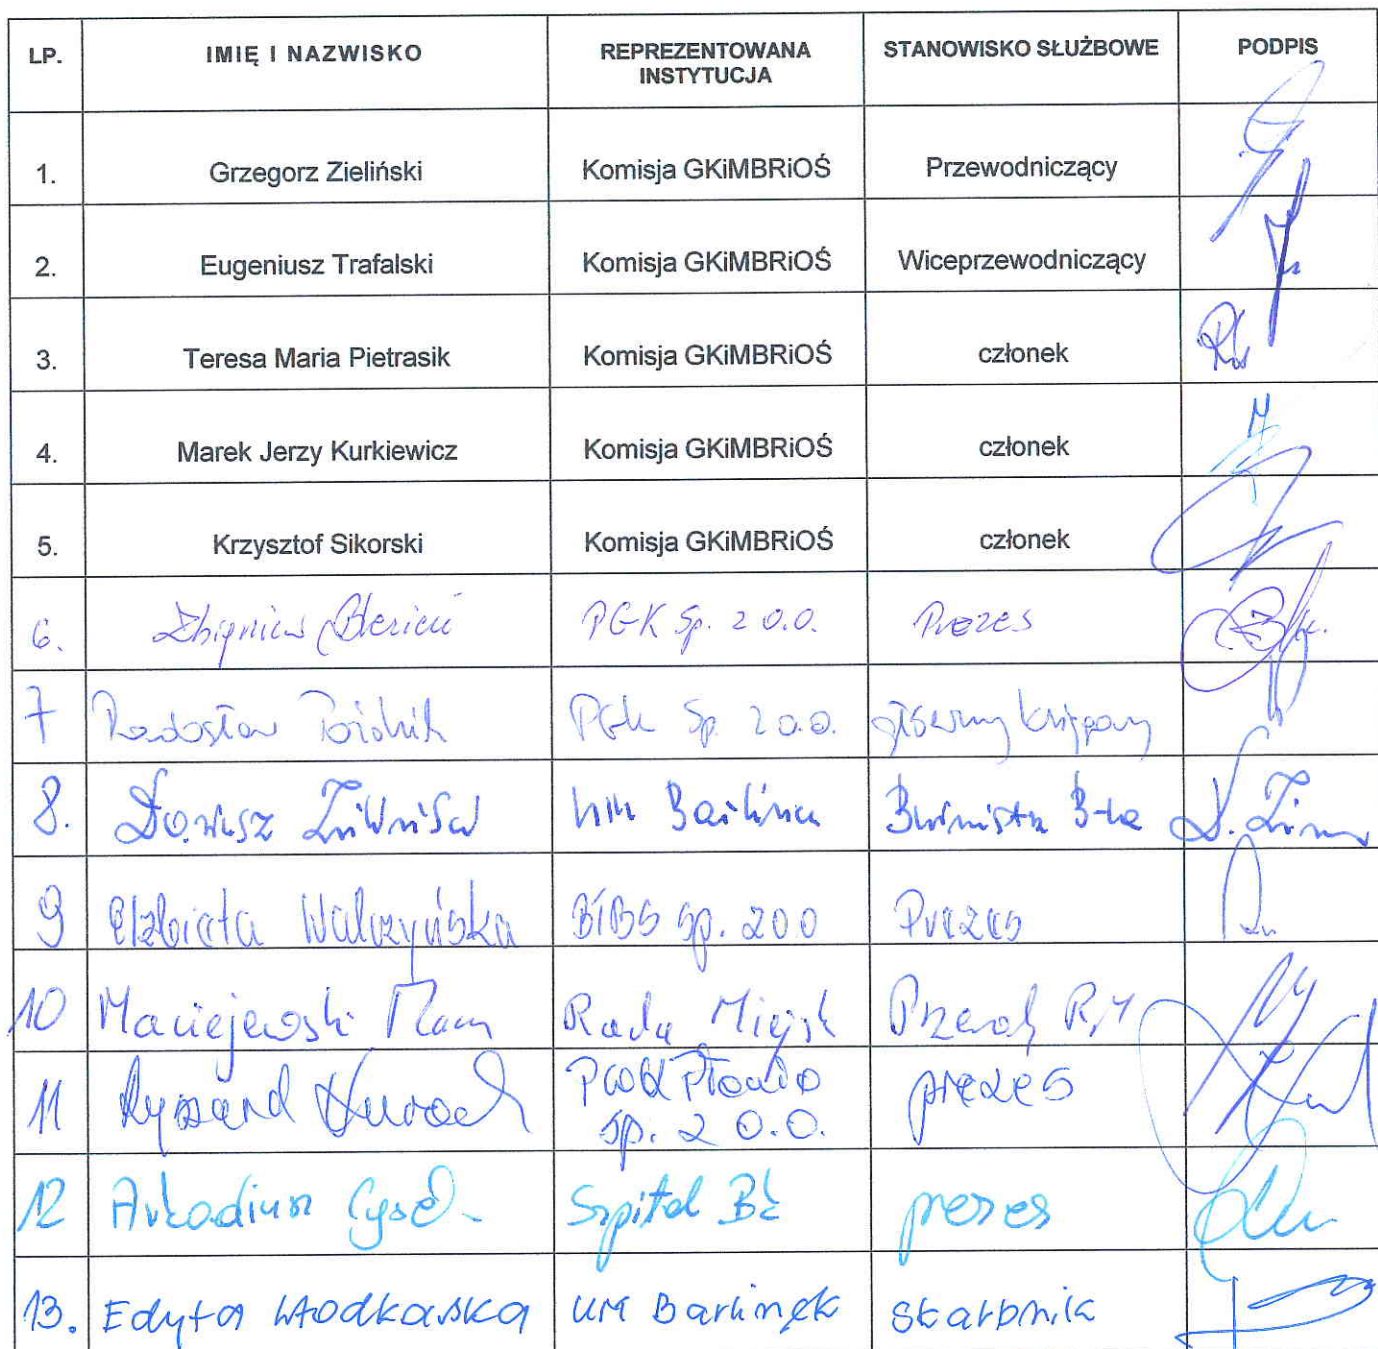 LP. IMIĘ I NAZWISKO REPREZENTOWANA INSTYTUCJA STANOWISKO SŁUŻBOWE PODPIS
1. Grzegorz Zieliński Komisja GKiMBRiOŚ Przewodniczący
2. Eugeniusz Trafalski Komisja GKiMBRiOŚ Wiceprzewodniczący
3. Teresa Maria Pietrasik Komisja GKiMBRiOŚ członek
4. Marek Jerzy Kurkiewicz Komisja GKiMBRiOŚ członek
5. Krzysztof Sikorski Komisja GKiMBRiOŚ członek
6. Zbigniew PGK Sp. z o.o. Prezes
7 Radosław PGK Sp. z o.o. główny księgowy
8. Dariusz UM Barlinek Burmistrz B-ka
9 Elżbieta Walczyńska BTBS Sp. z o o Prezes
10 Maciejewski Rada Miejsk Przewod R.M
11 Ryszard PWiK Płonia sp. z o.o. prezes
12 Arkadiusz Szpital prezes
13. Edyta Włodkowska UM Barlinek skarbnik